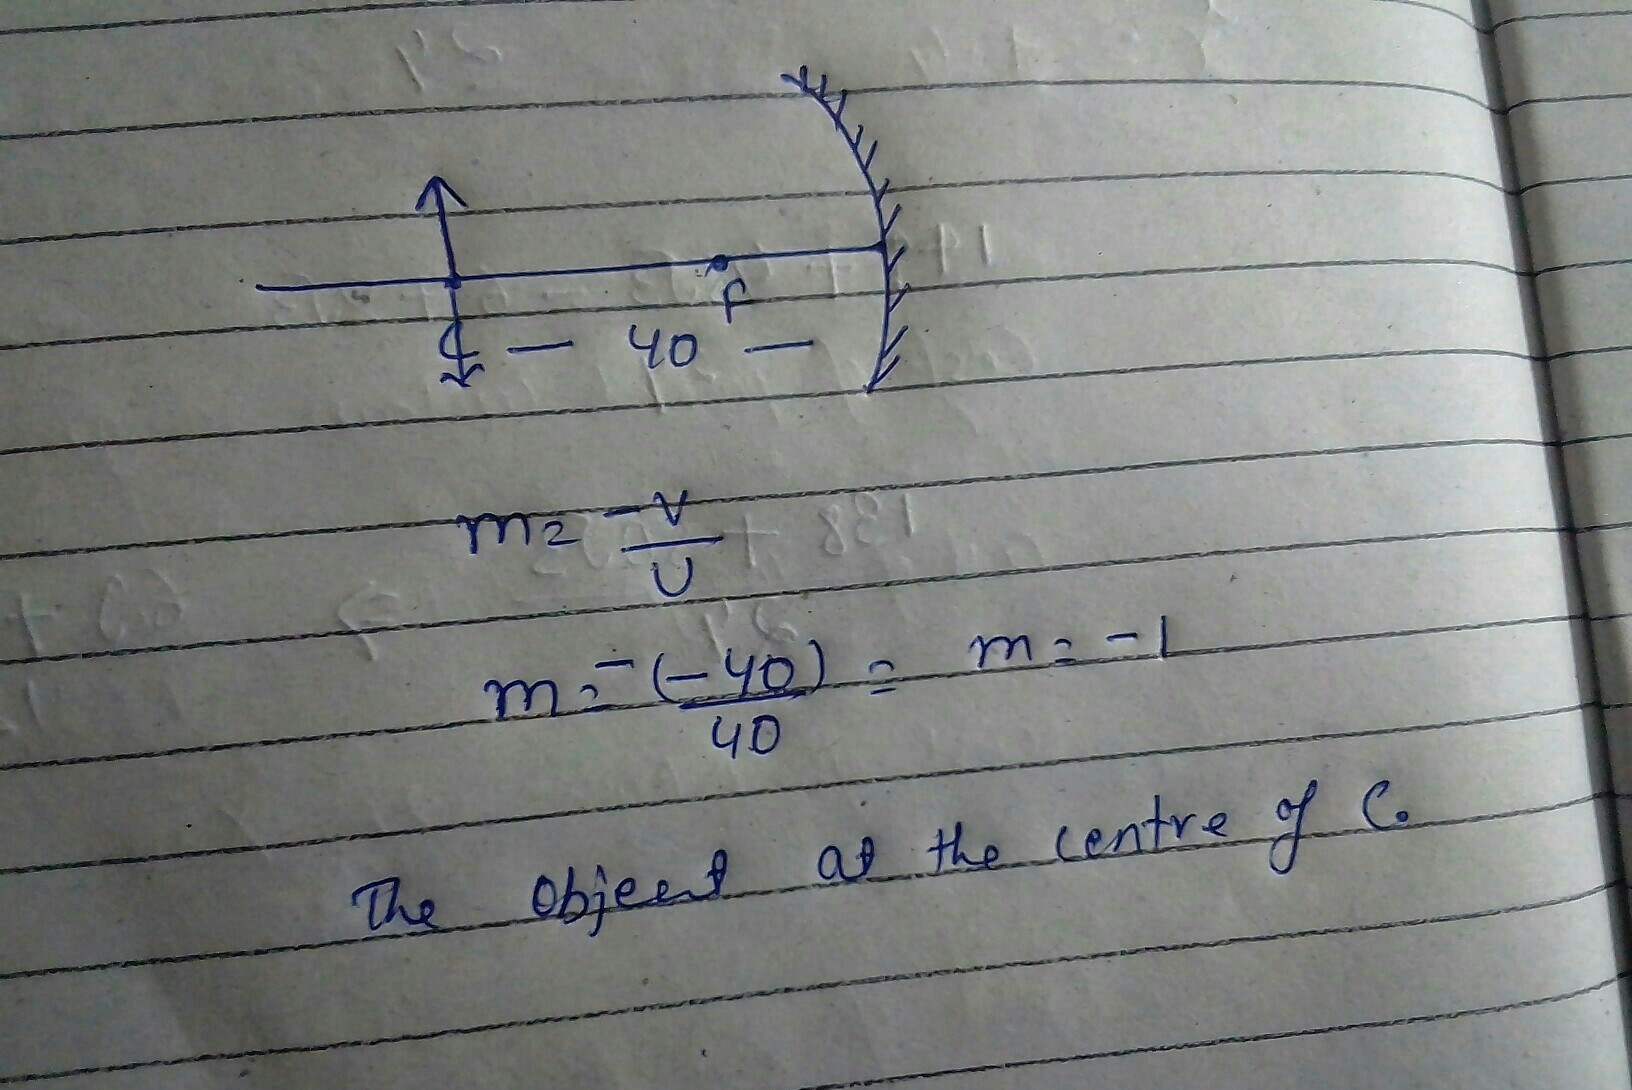 F
C — 40 —
m = -V
U
m = -(-40) = m = -1
40
The object at the centre of C.